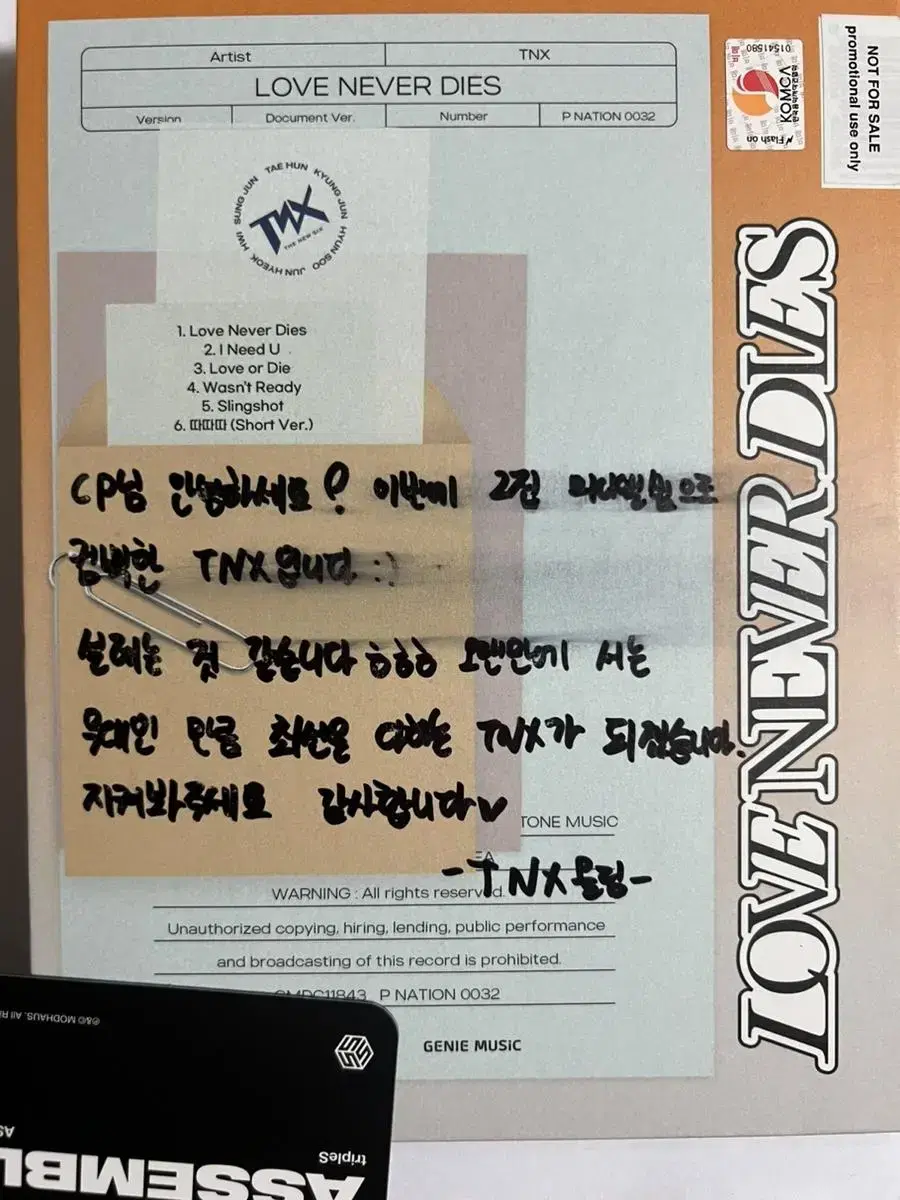 Artist TNX
LOVE NEVER DIES
Version Document Ver. Number P NATION 0032
TAE HUN KYUNG JUN HYUN SOO JUN HYEOK HWI SUNG JUN
TNX
THE NEW SIX
1. Love Never Dies
2. I Need U
3. Love or Die
4. Wasn't Ready
5. Slingshot
6. 따따따 (Short Ver.)
CP님 안녕하세요? 이번에 2집 미니앨범으로
컴백한 TNX입니다 :)
설레는 것 같습니다 ㅎㅎㅎ 오랜만에 서는
무대인 만큼 최선을 다하는 TNX가 되겠습니다.
지켜봐주세요 감사합니다♡
TONE MUSIC
EA
-TNX올림-
WARNING : All rights reserved.
Unauthorized copying, hiring, lending, public performance
and broadcasting of this record is prohibited.
CMDC11843 P NATION 0032
GENIE MUSIC
LOVE NEVER DIES
01541580
KOMCA
Flash on
NOT FOR SALE
promotional use only
MODHAUS. All Ri
tripleS
ASSEMBL